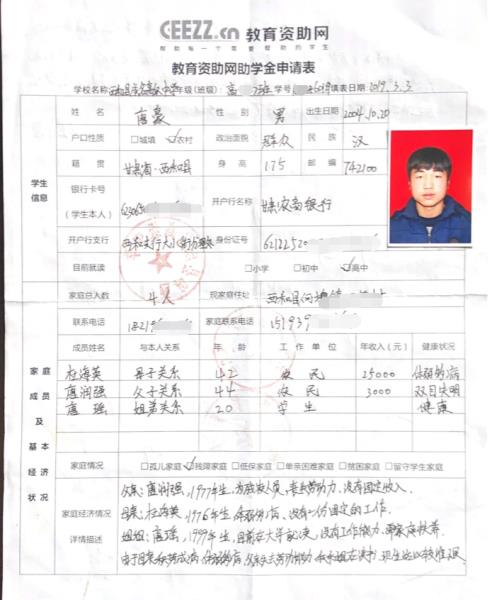 CEEZZ.cn 教育资助网
帮助每一个需要帮助的学生
教育资助网助学金申请表
学校名称 年级(班级): 高 班 学号 2619 填表日期: 2019.3.3
学生信息
姓名 唐豪 性别 男 出生日期 2004.10.20
户口性质 □城填 ☑农村 政治面貌 群众 民族 汉
籍贯 甘肃省·西和县 身高 175 邮编 742100
银行卡号(学生本人) 623065 开户行名称 甘肃农商银行
开户行支行 身份证号 62122520
目前就读 □小学 □初中 ☑高中
家庭成员及基本经济状况
家庭总人数 4人 现家庭住址 西和县
联系电话 18219 家庭联系电话 151939
成员姓名 与本人关系 年龄 工作单位 年收入(元) 健康状况
杜海英 母子关系 42 农民 25000 体弱多病
唐润强 父子关系 44 农民 3000 双目失明
唐瑶 姐弟关系 20 学生 健康
家庭情况 □孤儿家庭 ☑残障家庭 □低保家庭 □单亲困难家庭 □贫困家庭 □留守学生家庭
家庭经济情况详情描述
父亲: 唐润强, 1977年生, 丧失劳动力, 没有固定收入.
母亲: 杜海英, 1976年生, 体弱多病, 没有一份固定的工作.
姐姐: 唐瑶, 1999年生, 目前在大学就读, 没有工作能力, 需家庭扶养.